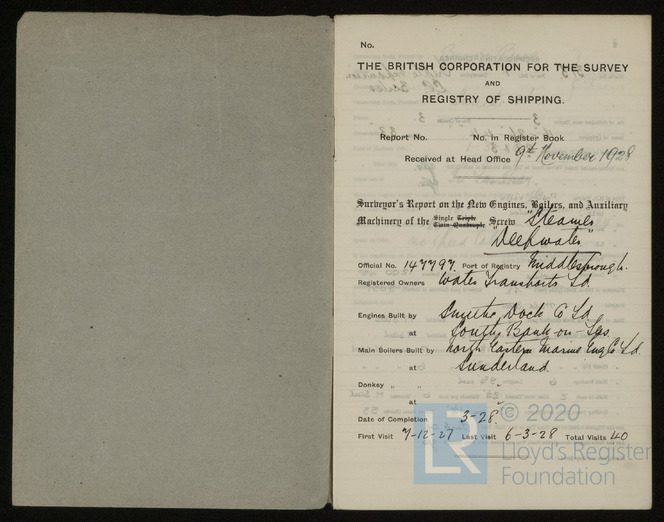 No.
THE BRITISH CORPORATION FOR THE SURVEY
AND
REGISTRY OF SHIPPING.
Report No. No. in Register Book
Received at Head Office 9th November 1928
Surveyor's Report on the New Engines, Boilers, and Auxiliary
Machinery of the Single Triple Twin Quadruple Screw "Steamer
"Deepwater"
Official No. 147797. Port of Registry Middlesbrough.
Registered Owners Water Transports Ld.
Engines Built by Smiths Dock Co Ld.
at South Bank-on-Tees.
Main Boilers Built by North Eastern Marine Eng Co Ld.
at Sunderland.
Donkey " "
at
Date of Completion 3-28.
First Visit 7-12-27 Last Visit 6-3-28 Total Visits 40
LR © 2020
Lloyd's Register
Foundation